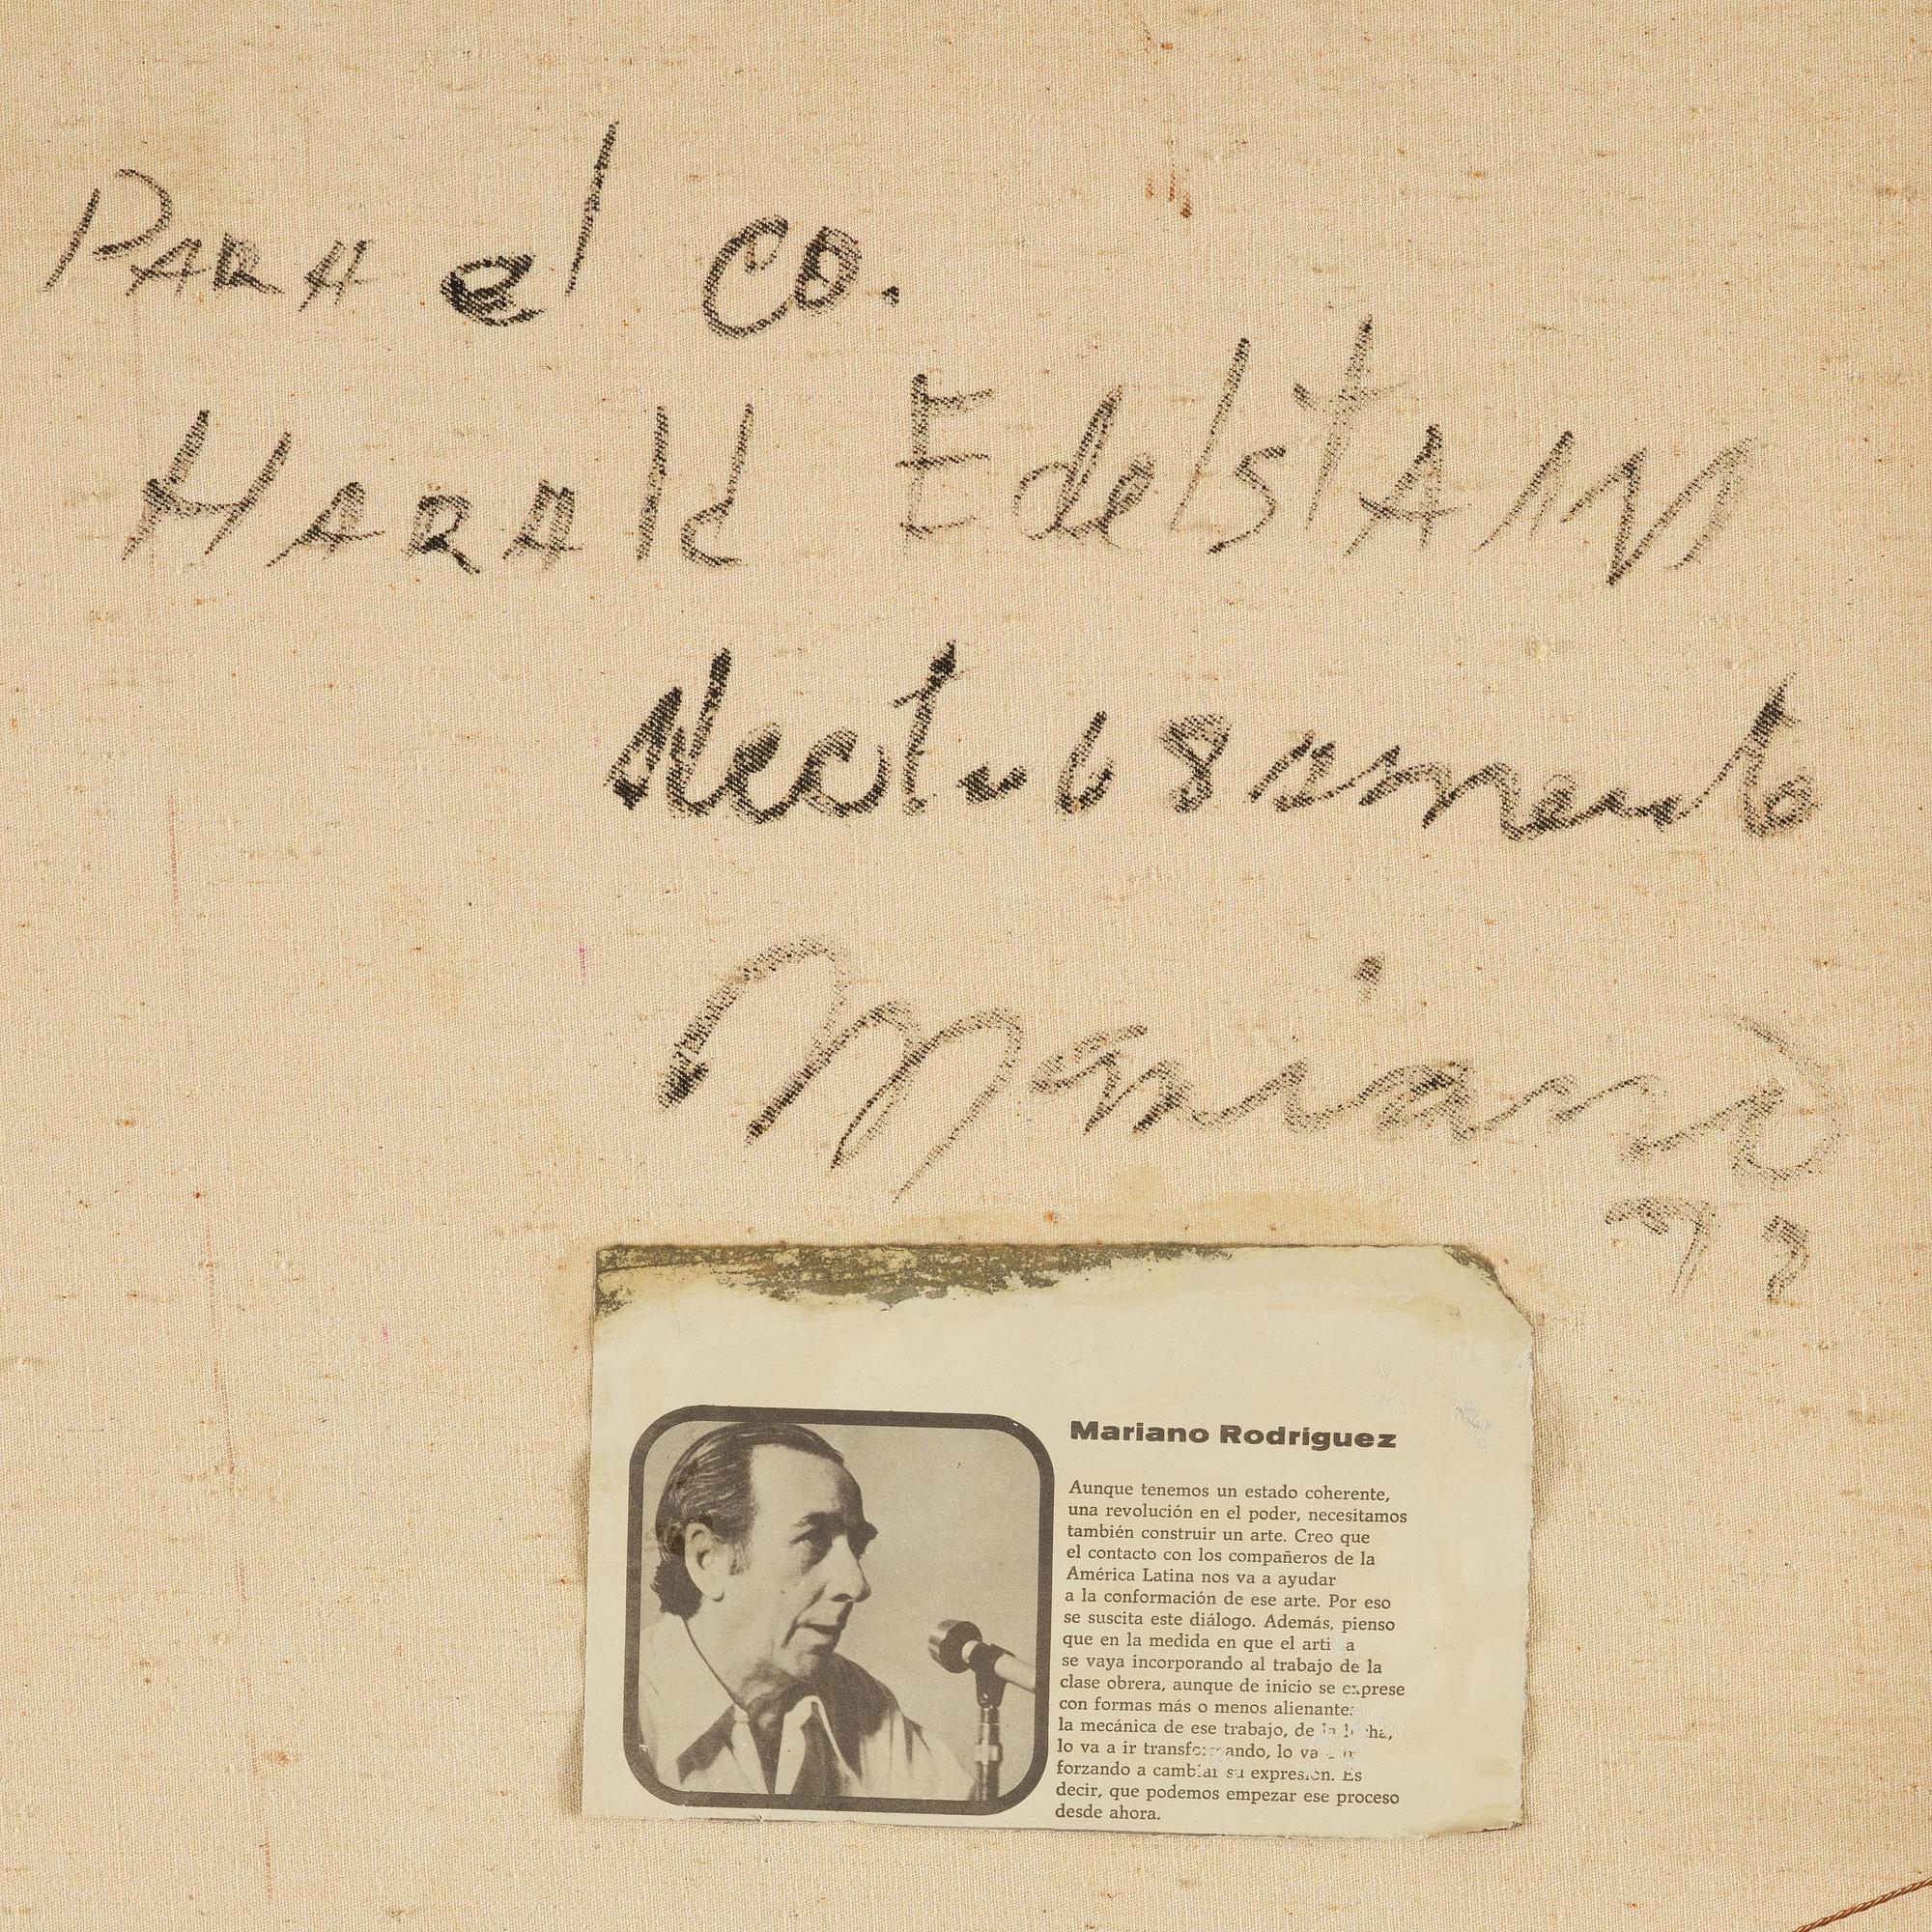 PARA el CO.
HARAld EdelstAM
Afectuosamente
Mariano
73
Mariano Rodríguez
Aunque tenemos un estado coherente,
una revolución en el poder, necesitamos
también construir un arte. Creo que
el contacto con los compañeros de la
América Latina nos va a ayudar
a la conformación de ese arte. Por eso
se suscita este diálogo. Además, pienso
que en la medida en que el
se vaya incorporando al trabajo de la
clase obrera, aunque de inicio se exprese
con formas más o menos alienantes
la mecánica de ese trabajo, de la lucha,
lo va a ir transformando, lo va
forzando a cambiar su expresión. Es
decir, que podemos empezar ese proceso
desde ahora.